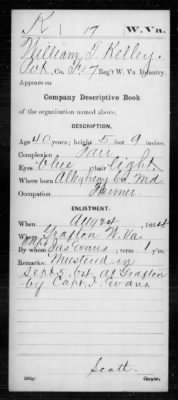 K 17 W. Va.
William T. Kelley
Pvt., Co. F, 17 Reg't W. Va. Infantry.
Appears on
Company Descriptive Book
of the organization named above.
DESCRIPTION.
Age 40 years; height 5 feet 9 inches.
Complexion Fair
Eyes Blue; hair Light
Where born Allegheny Co, Md
Occupation Farmer
ENLISTMENT.
When Aug 24, 1864.
Where Grafton W. Va.
By whom Capt Jas Evans; term 1 y'rs.
Remarks: Musterd in
Sept 5, 64 at Grafton
by Capt. J. Evans
Scott.
Copyist.